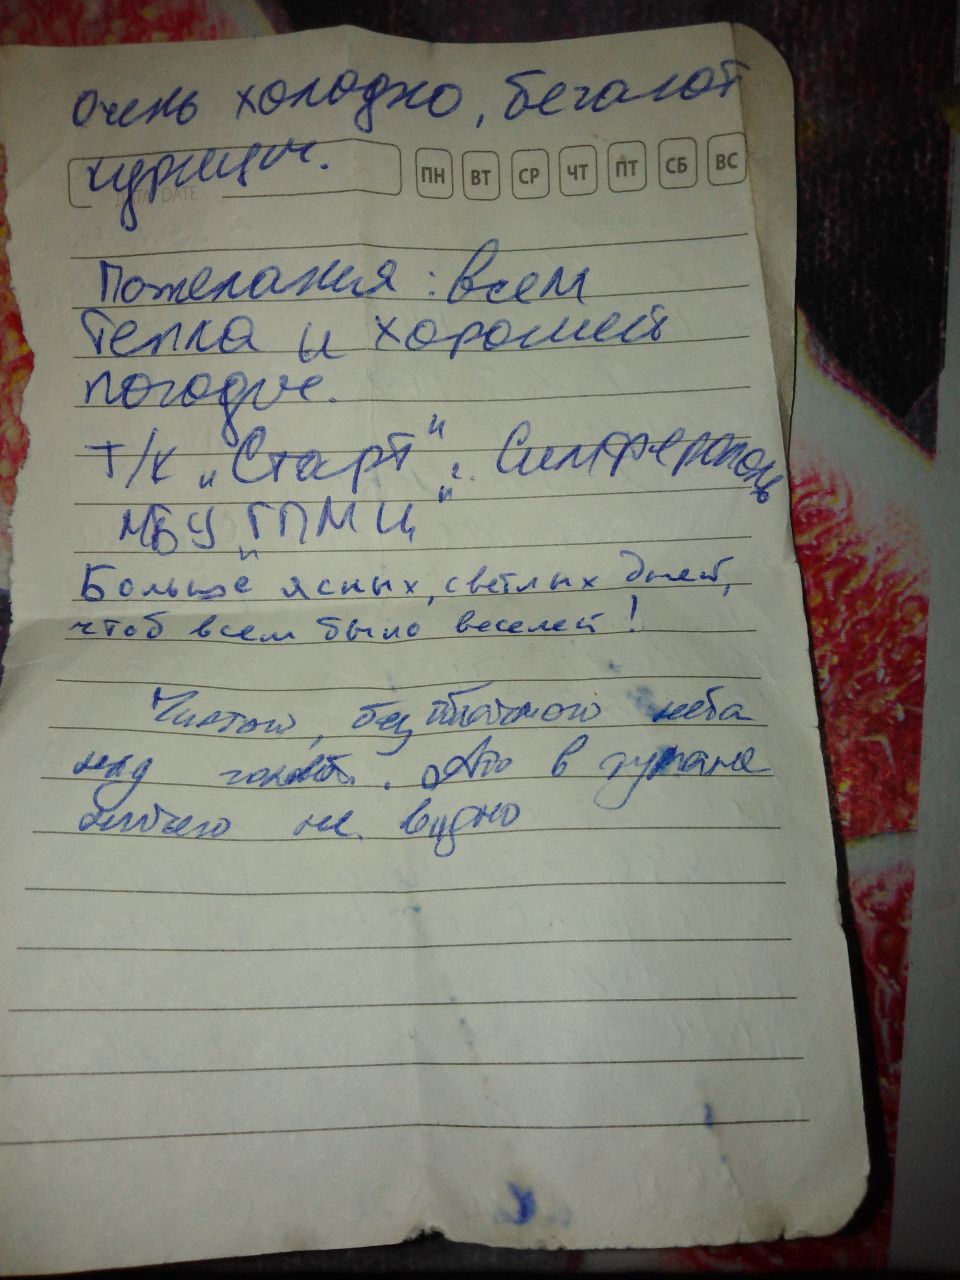 очень холодно, бегают
курицы.
ДАТА/DATE ПН ВТ СР ЧТ ПТ СБ ВС
Пожелания: всем
тепла и хорошей
погоды.
Т/К "Старт" г. Симферополь
МБУ "ГПМЦ"
Больше ясных, светлых дней,
чтоб всем было веселей!
Чистого, безоблачного неба
над головой. А то в тумане
ничего не видно